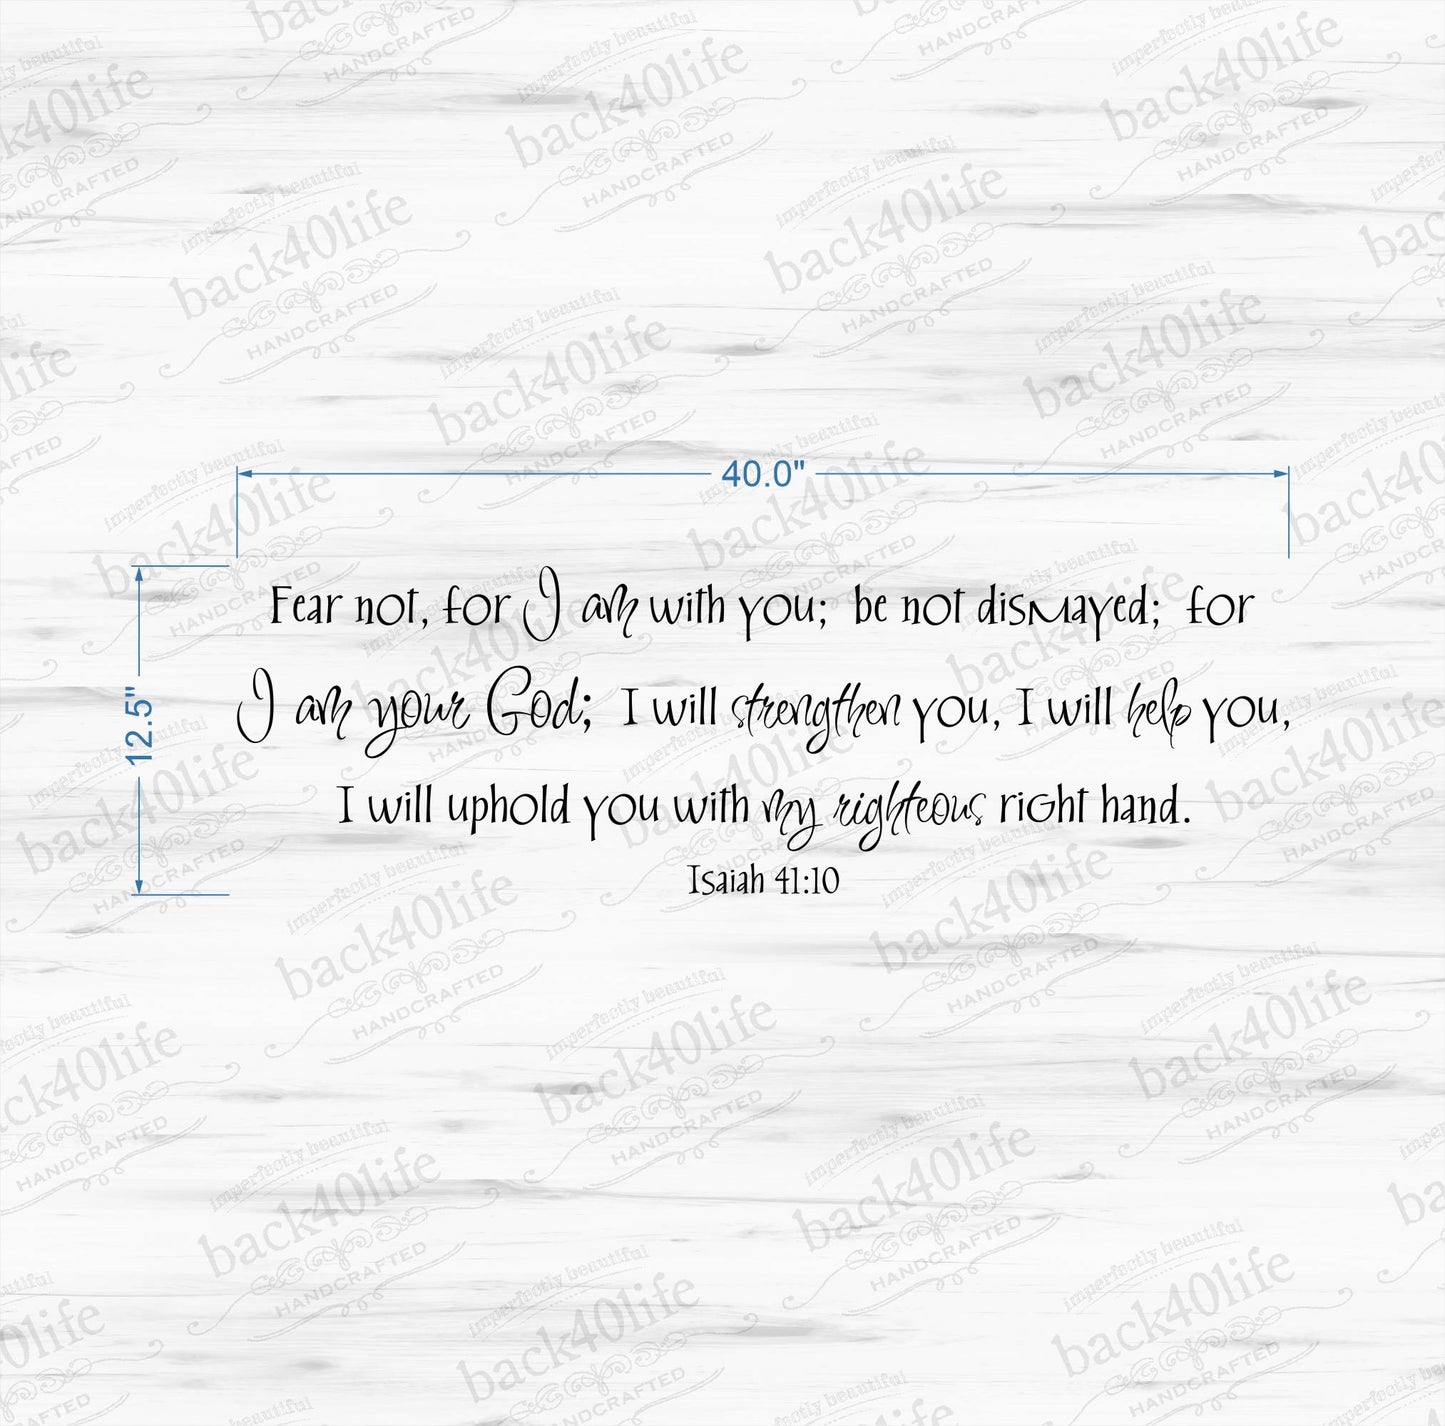 40.0"
12.5"
Fear not, for I am with you; be not dismayed; for
I am your God; I will strengthen you, I will help you,
I will uphold you with my righteous right hand.
Isaiah 41:10
imperfectly beautiful
back40life
HANDCRAFTED